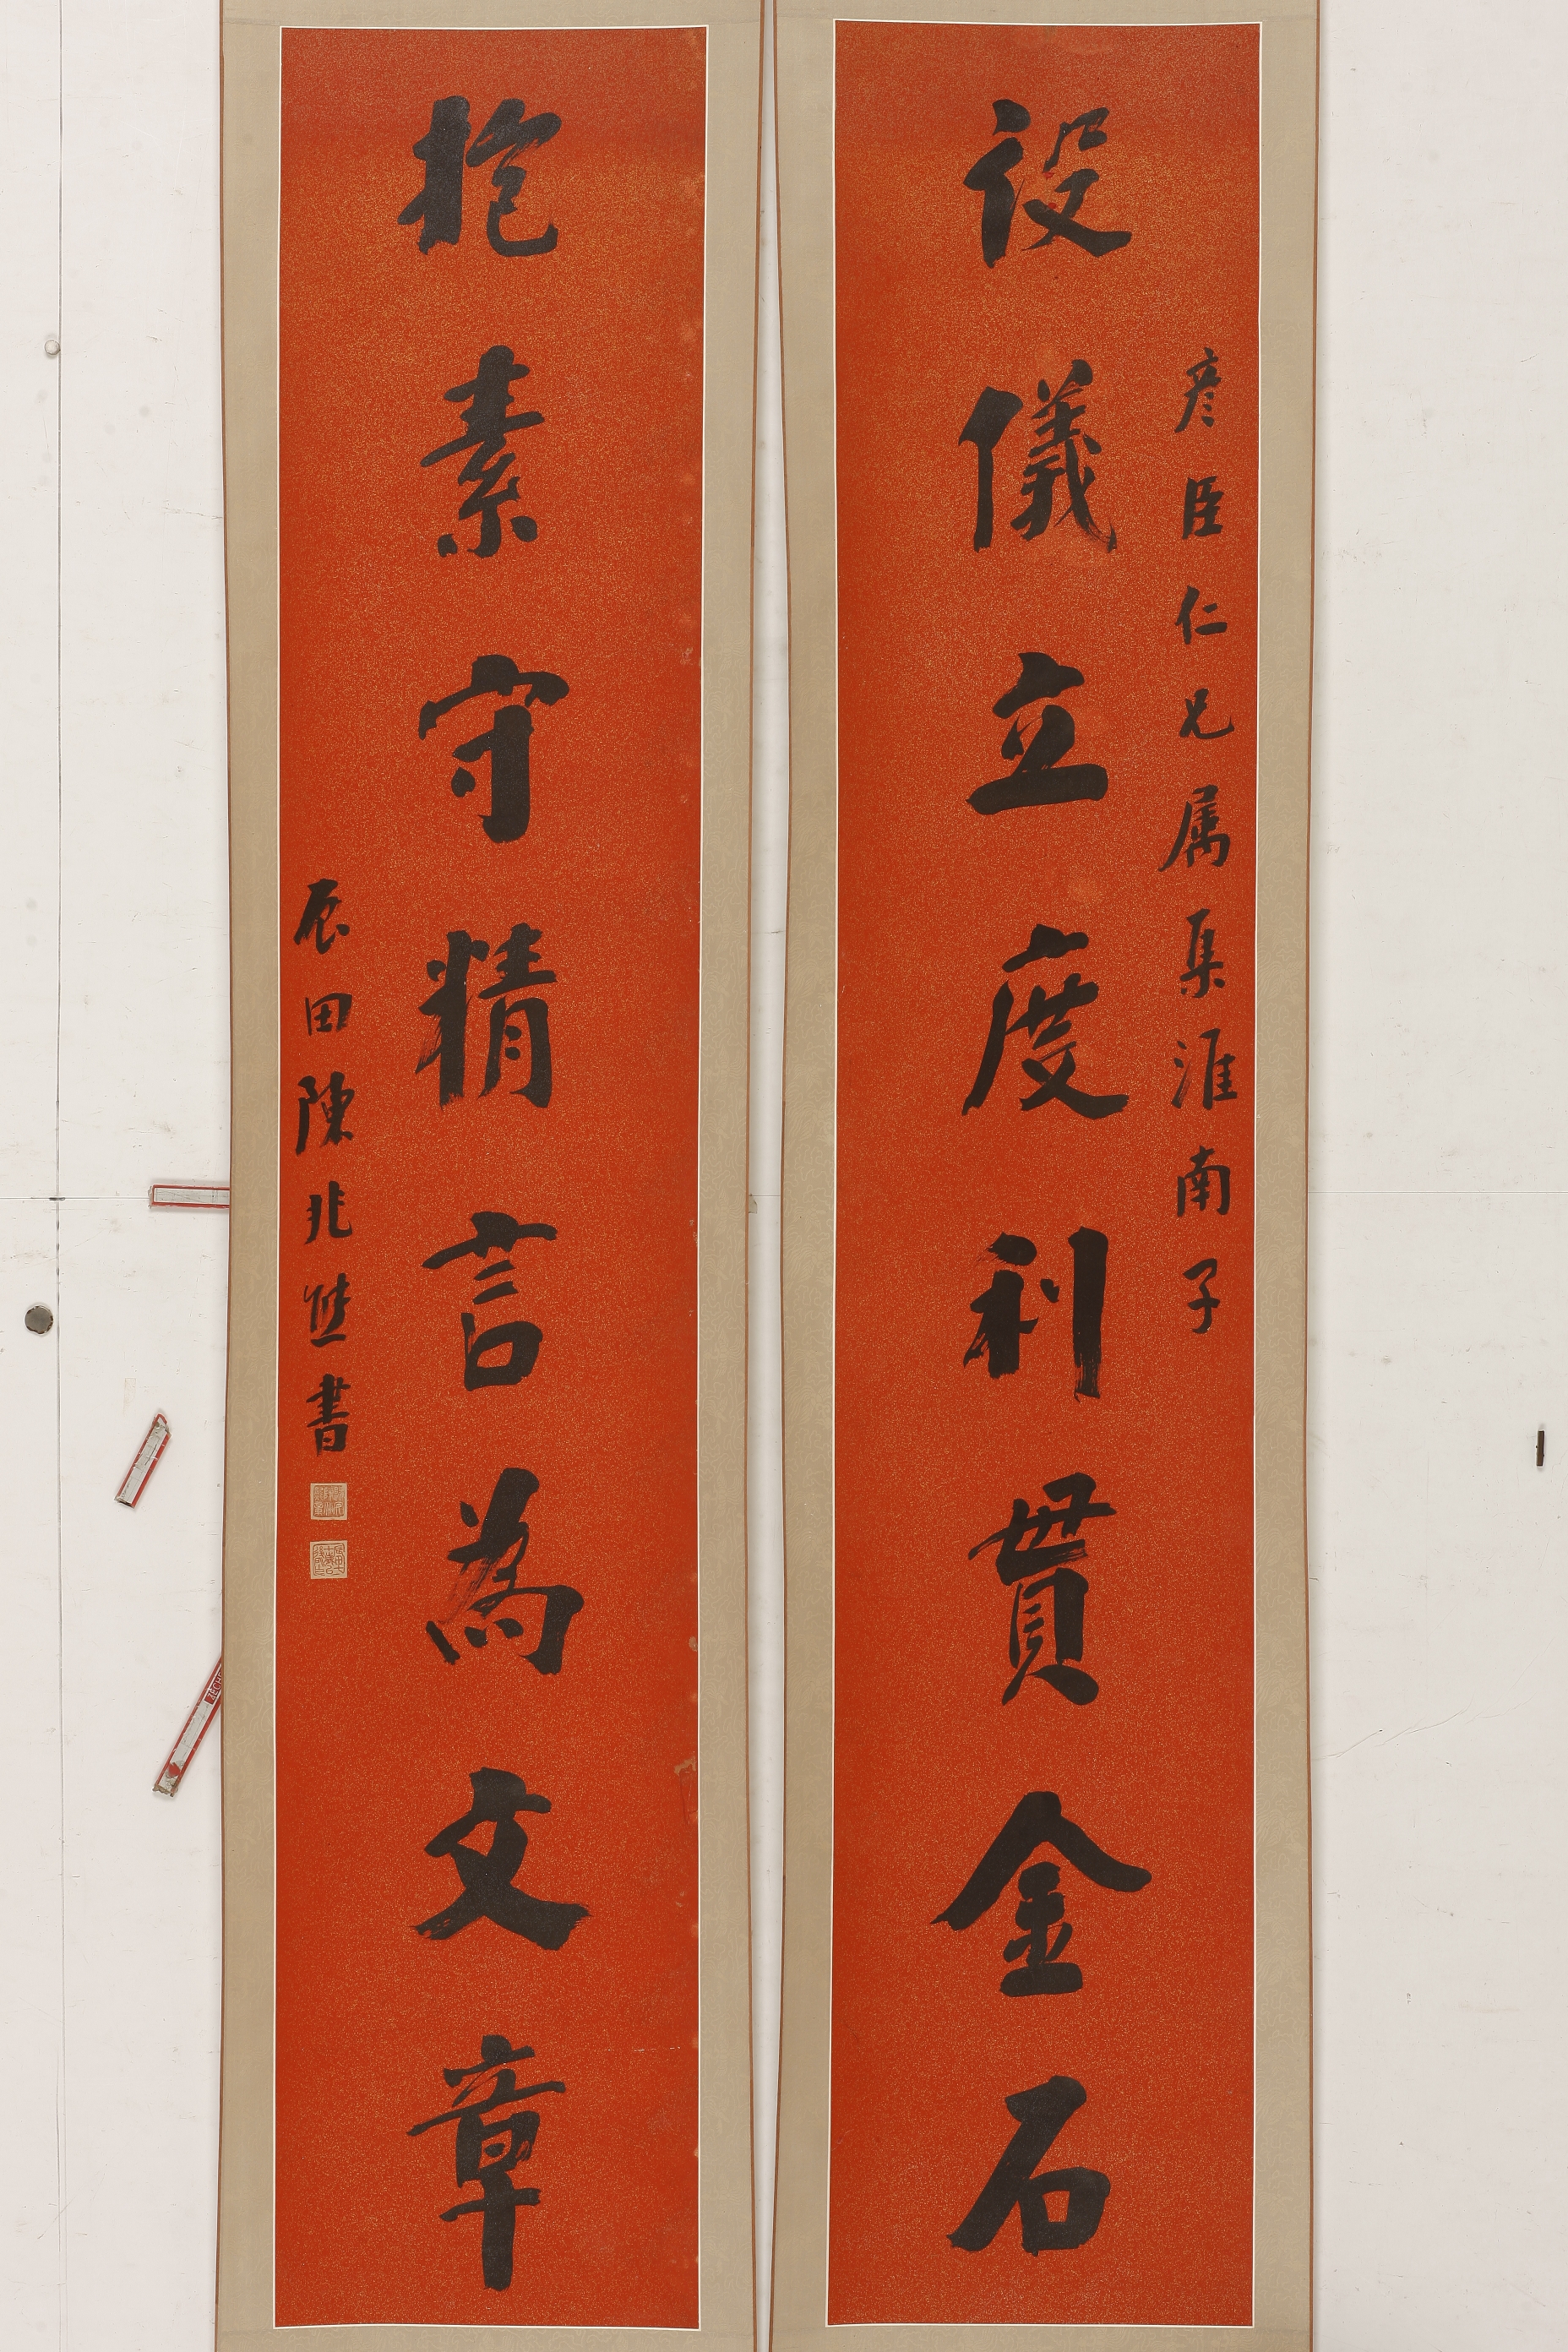 彥臣仁兄属集淮南子
設儀立度利貫金石
抱素守精言為文章
田陳兆熊書